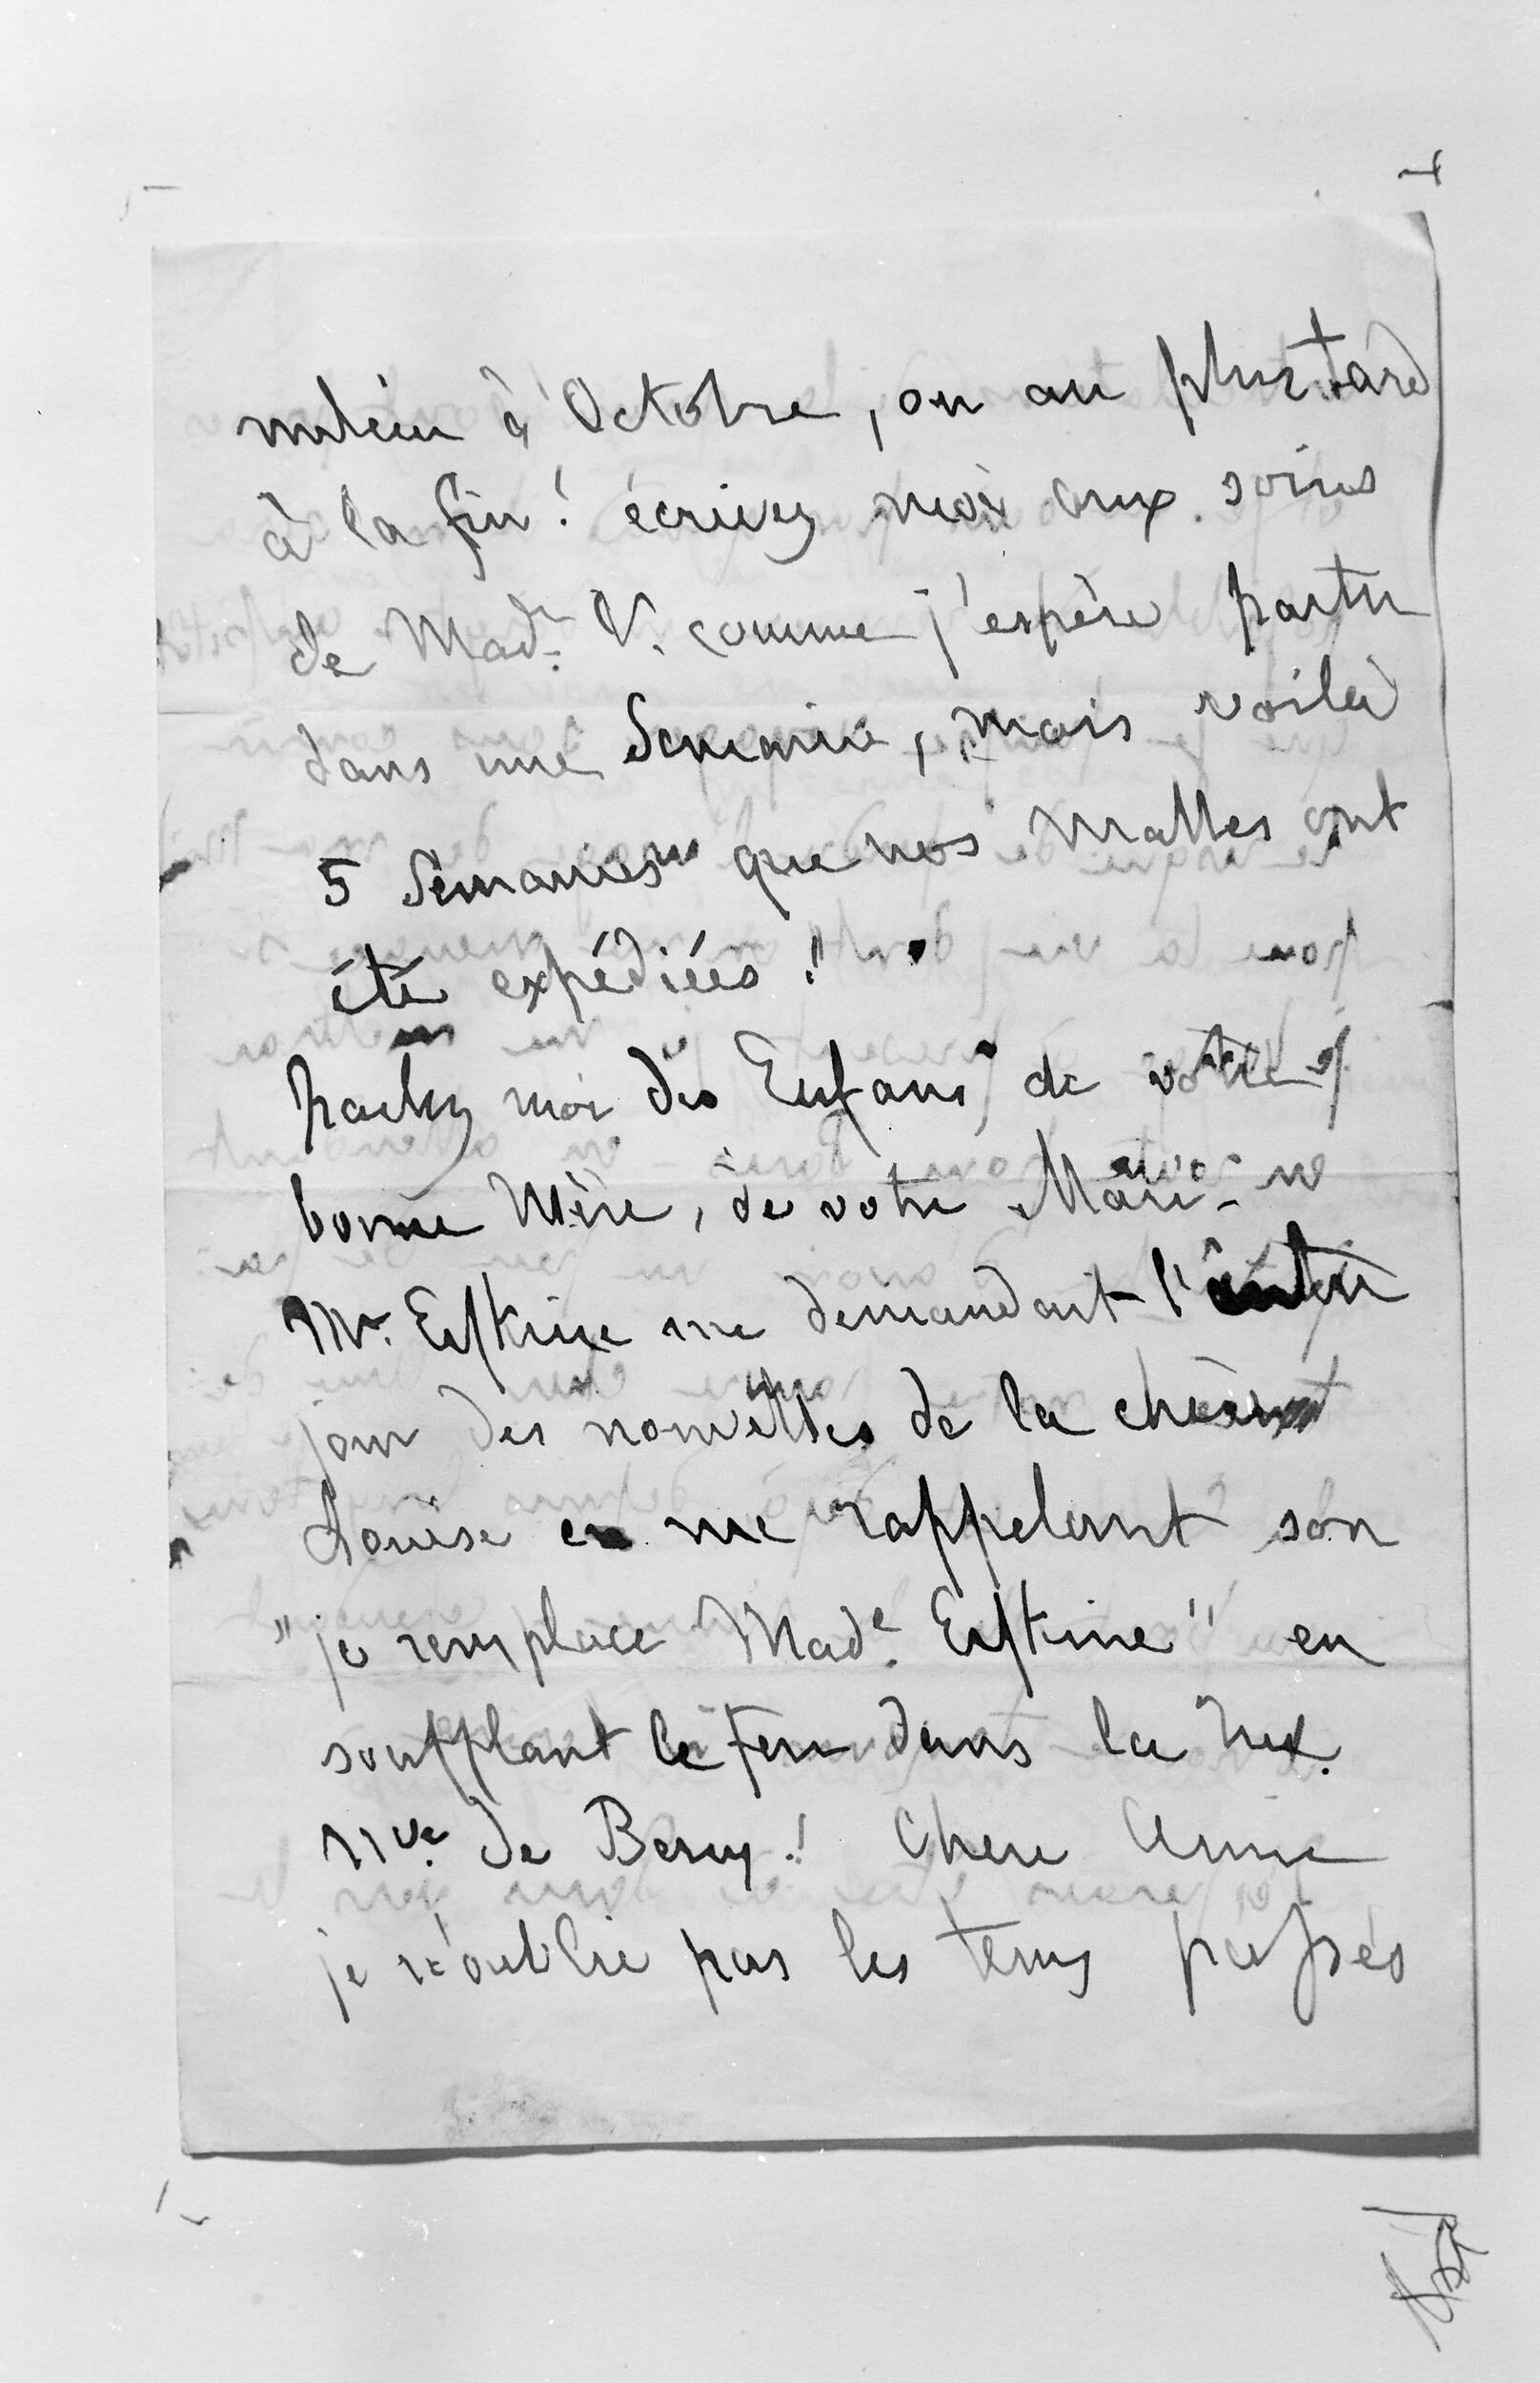 milieu d'Octobre, ou au plus tard
à la fin! écrivez moi aux soins
de Made. V. comme j'espère partir
dans une Semaine, mais voilà
5 Semaines que nos Malles ont
été expédiées!!
Parlez moi des Enfans, de votre
bonne Mère, de votre Mari -
Mr. Erskine me demandait l'autre
jour des nouvelles de la chère
Louise en me rappelant son
"je remplace Made. Erskine" en
soufflant le feu dans la rue.
nve. de Berry! Chere Amie
je n'oublie pas les tems passés